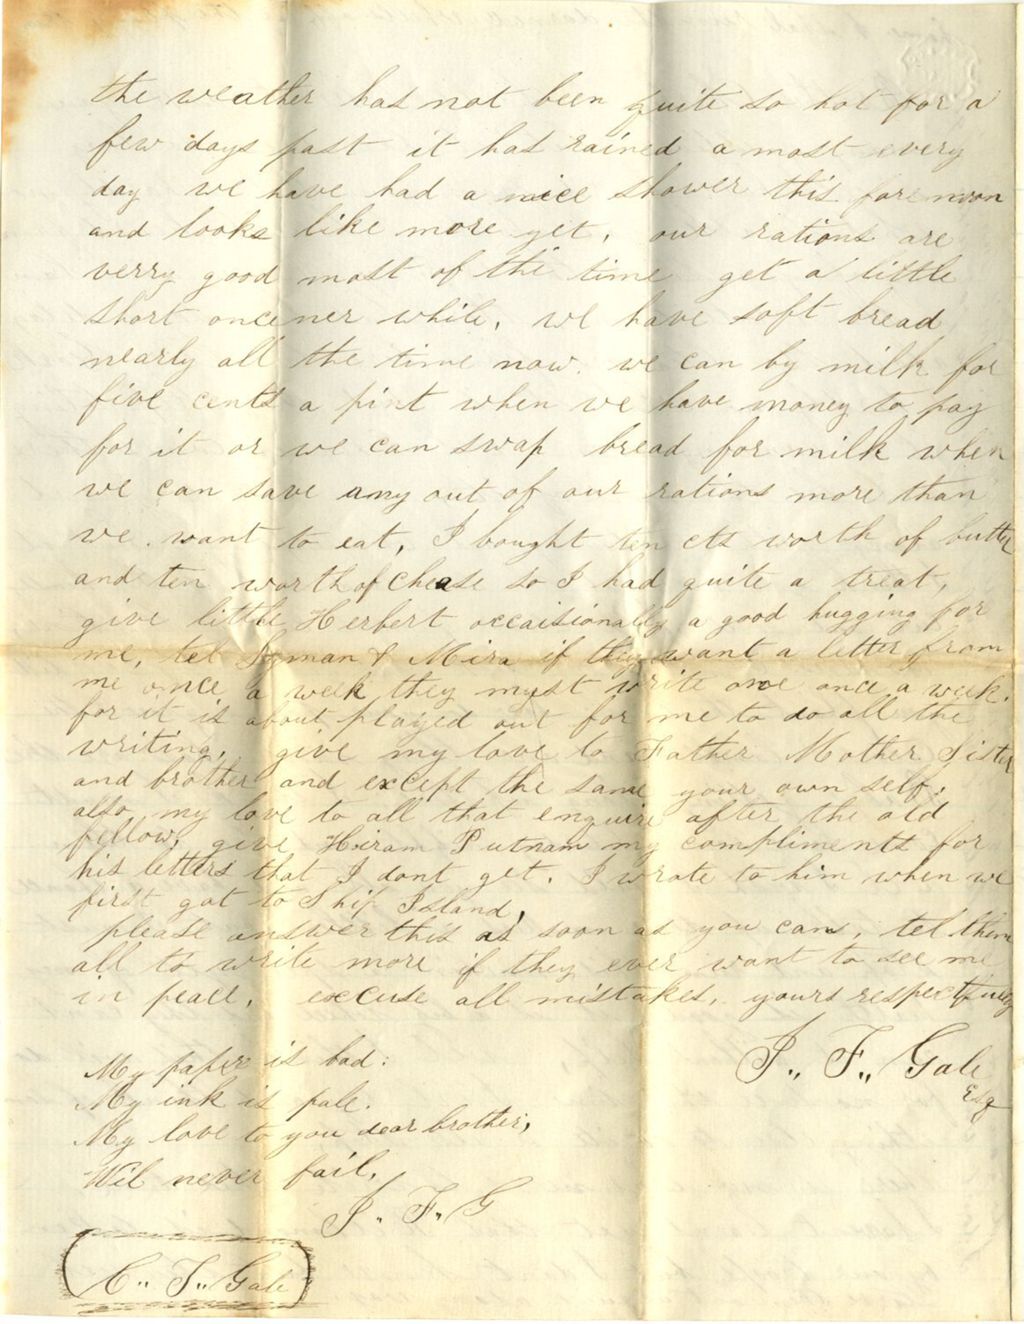 the weather has not been quite so hot for a
few days past it has rained a most every
day we have had a nice shower this forenoon
and looks like more yet, our rations are
verry good most of the time get a little
short once ner while, we have soft bread
nearly all the time now. we can by milk for
five cents a pint when we have money to pay
for it or we can swap bread for milk when
we can save any out of our rations more than
we want to eat, I bought ten cts worth of butter
and ten worth of chease so I had quite a treat,
give little Herbert occaisionally a good hugging for
me, tel Lyman & Mira if they want a letter from
me once a week they myst write one once a week.
for it is about played out for me to do all the
writing, give my love to Father Mother Sister
and brother and except the same your own self.
also my love to all that enquire after the old
fellow, give Hiram Putnam my compliments for
his letters that I dont get. I wrote to him when we
first got to Ship Island,
please answer this as soon as you can, tel them
all to write more if they ever want to see me
in peace, excuse all mistakes, yours respectfully
J.. F.. Gale
Esq
My paper is bad:
My ink is pale.
My love to you dear brother,
Wil never fail,
J.. F.. G
C.. T.. Gale